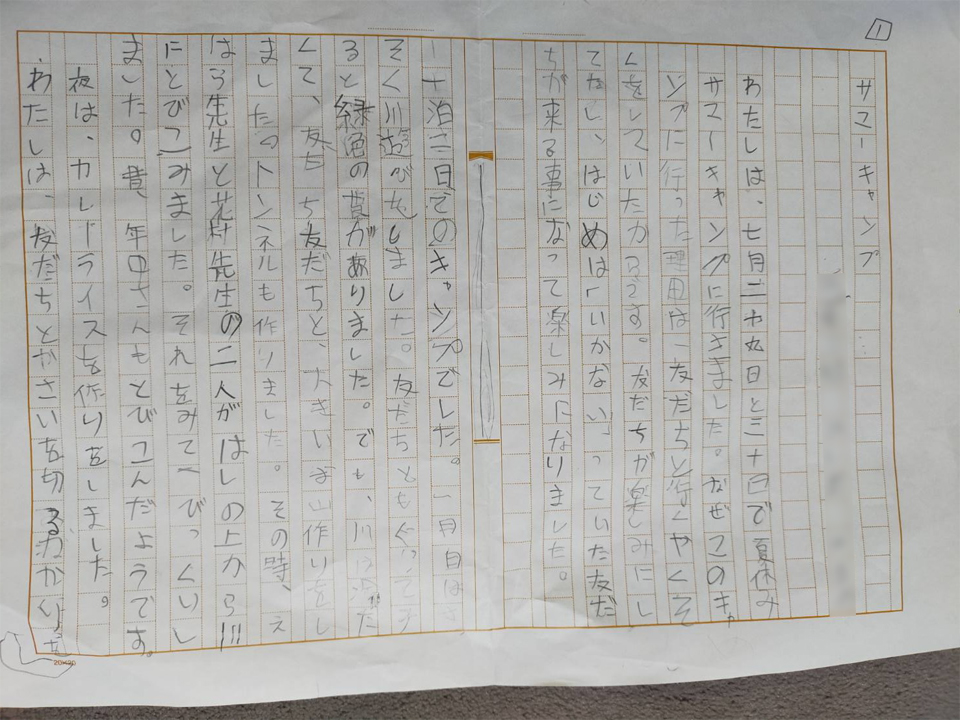 1
サマーキャンプ
わたしは、七月二十九日と三十日で夏休み
サマーキャンプに行きました。なぜこのキャ
ンプに行った理由は、友だちと行くやくそ
くをしていたからです。友だちが楽しみにし
てたし、はじめは「いかない」っていた友だ
ちが来る事になって楽しみになりました。
一十泊二日でのキャンプでした。一月日はさ
そく川遊びをしました。友だちともぐって
ると緑色の魚がありました。でも、川は
くて、友だち友だちと、大きいす山作りをし
ましたのトンネルも作りました。その時、え
はら先生と花村先生の二人がはしの上から川
にとびこみました。それをみてーびっくりし
ました。昔、年中さんもとびこんだようです。
夜は、カレーライスを作りをしました。
わたしは、友だちとやさいを切るかかりを
20×20